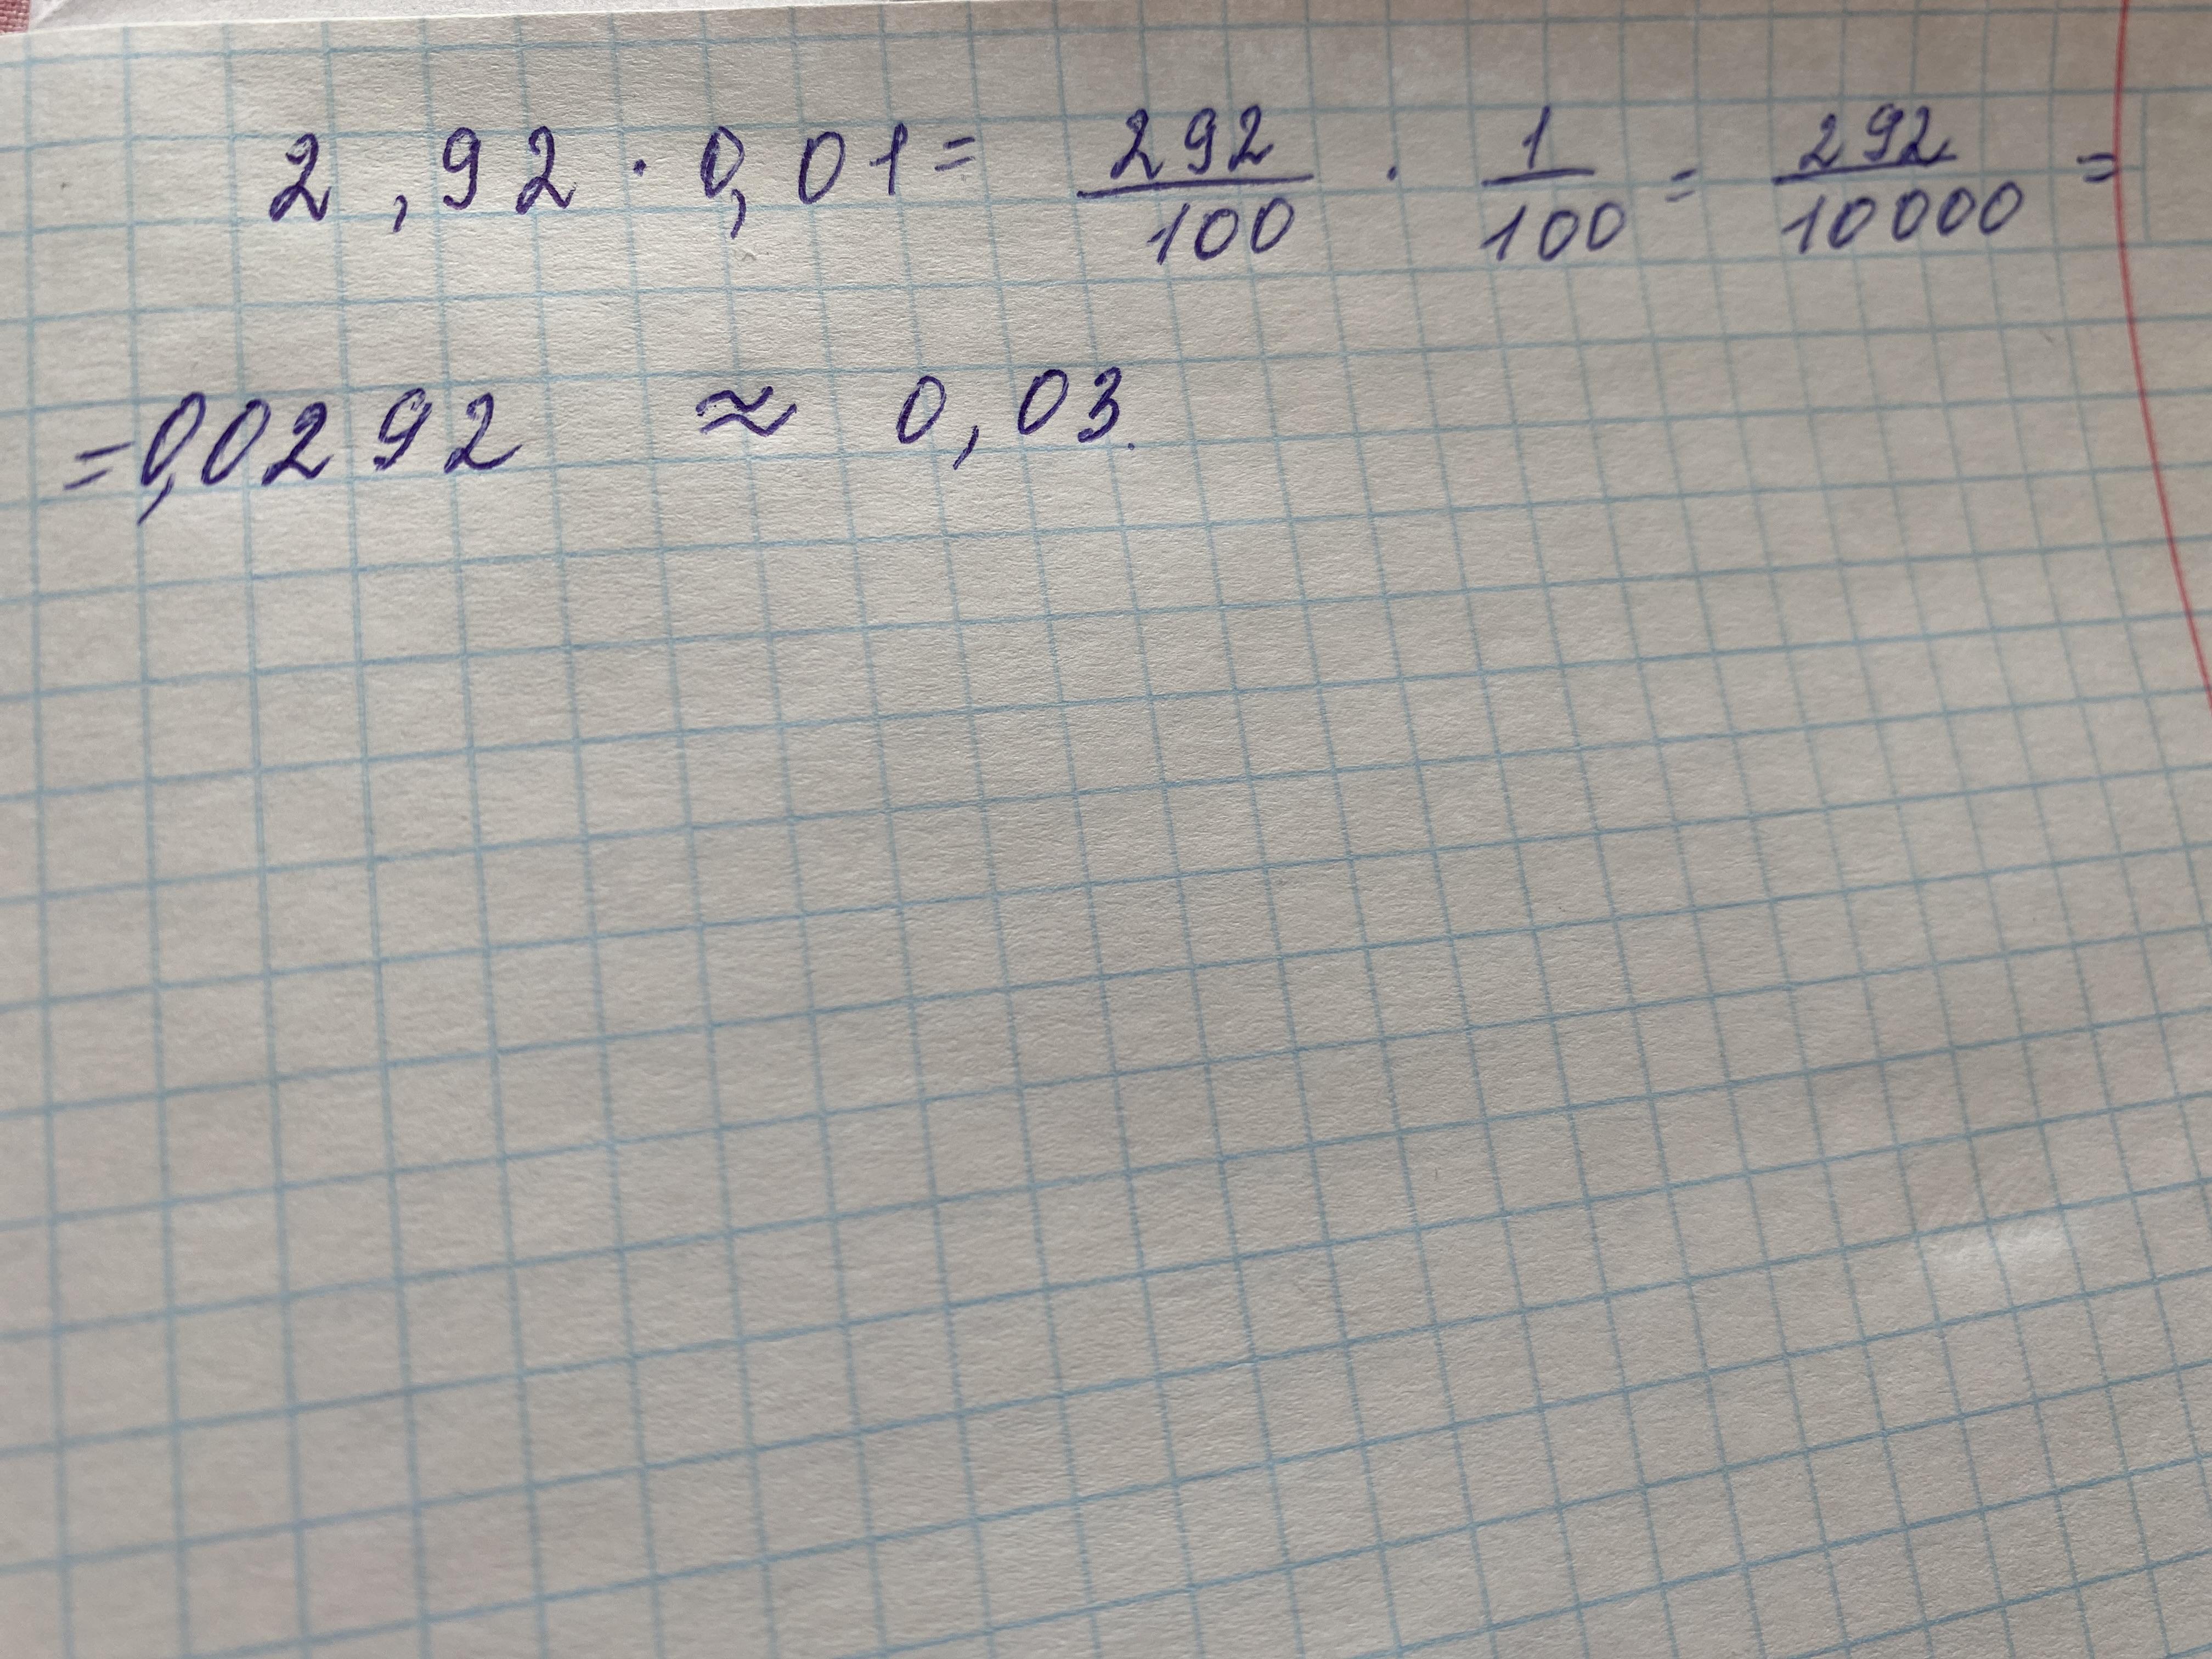 2,92 · 0,01 = 292/100 · 1/100 = 292/10000 =
= 0,0292 ≈ 0,03.